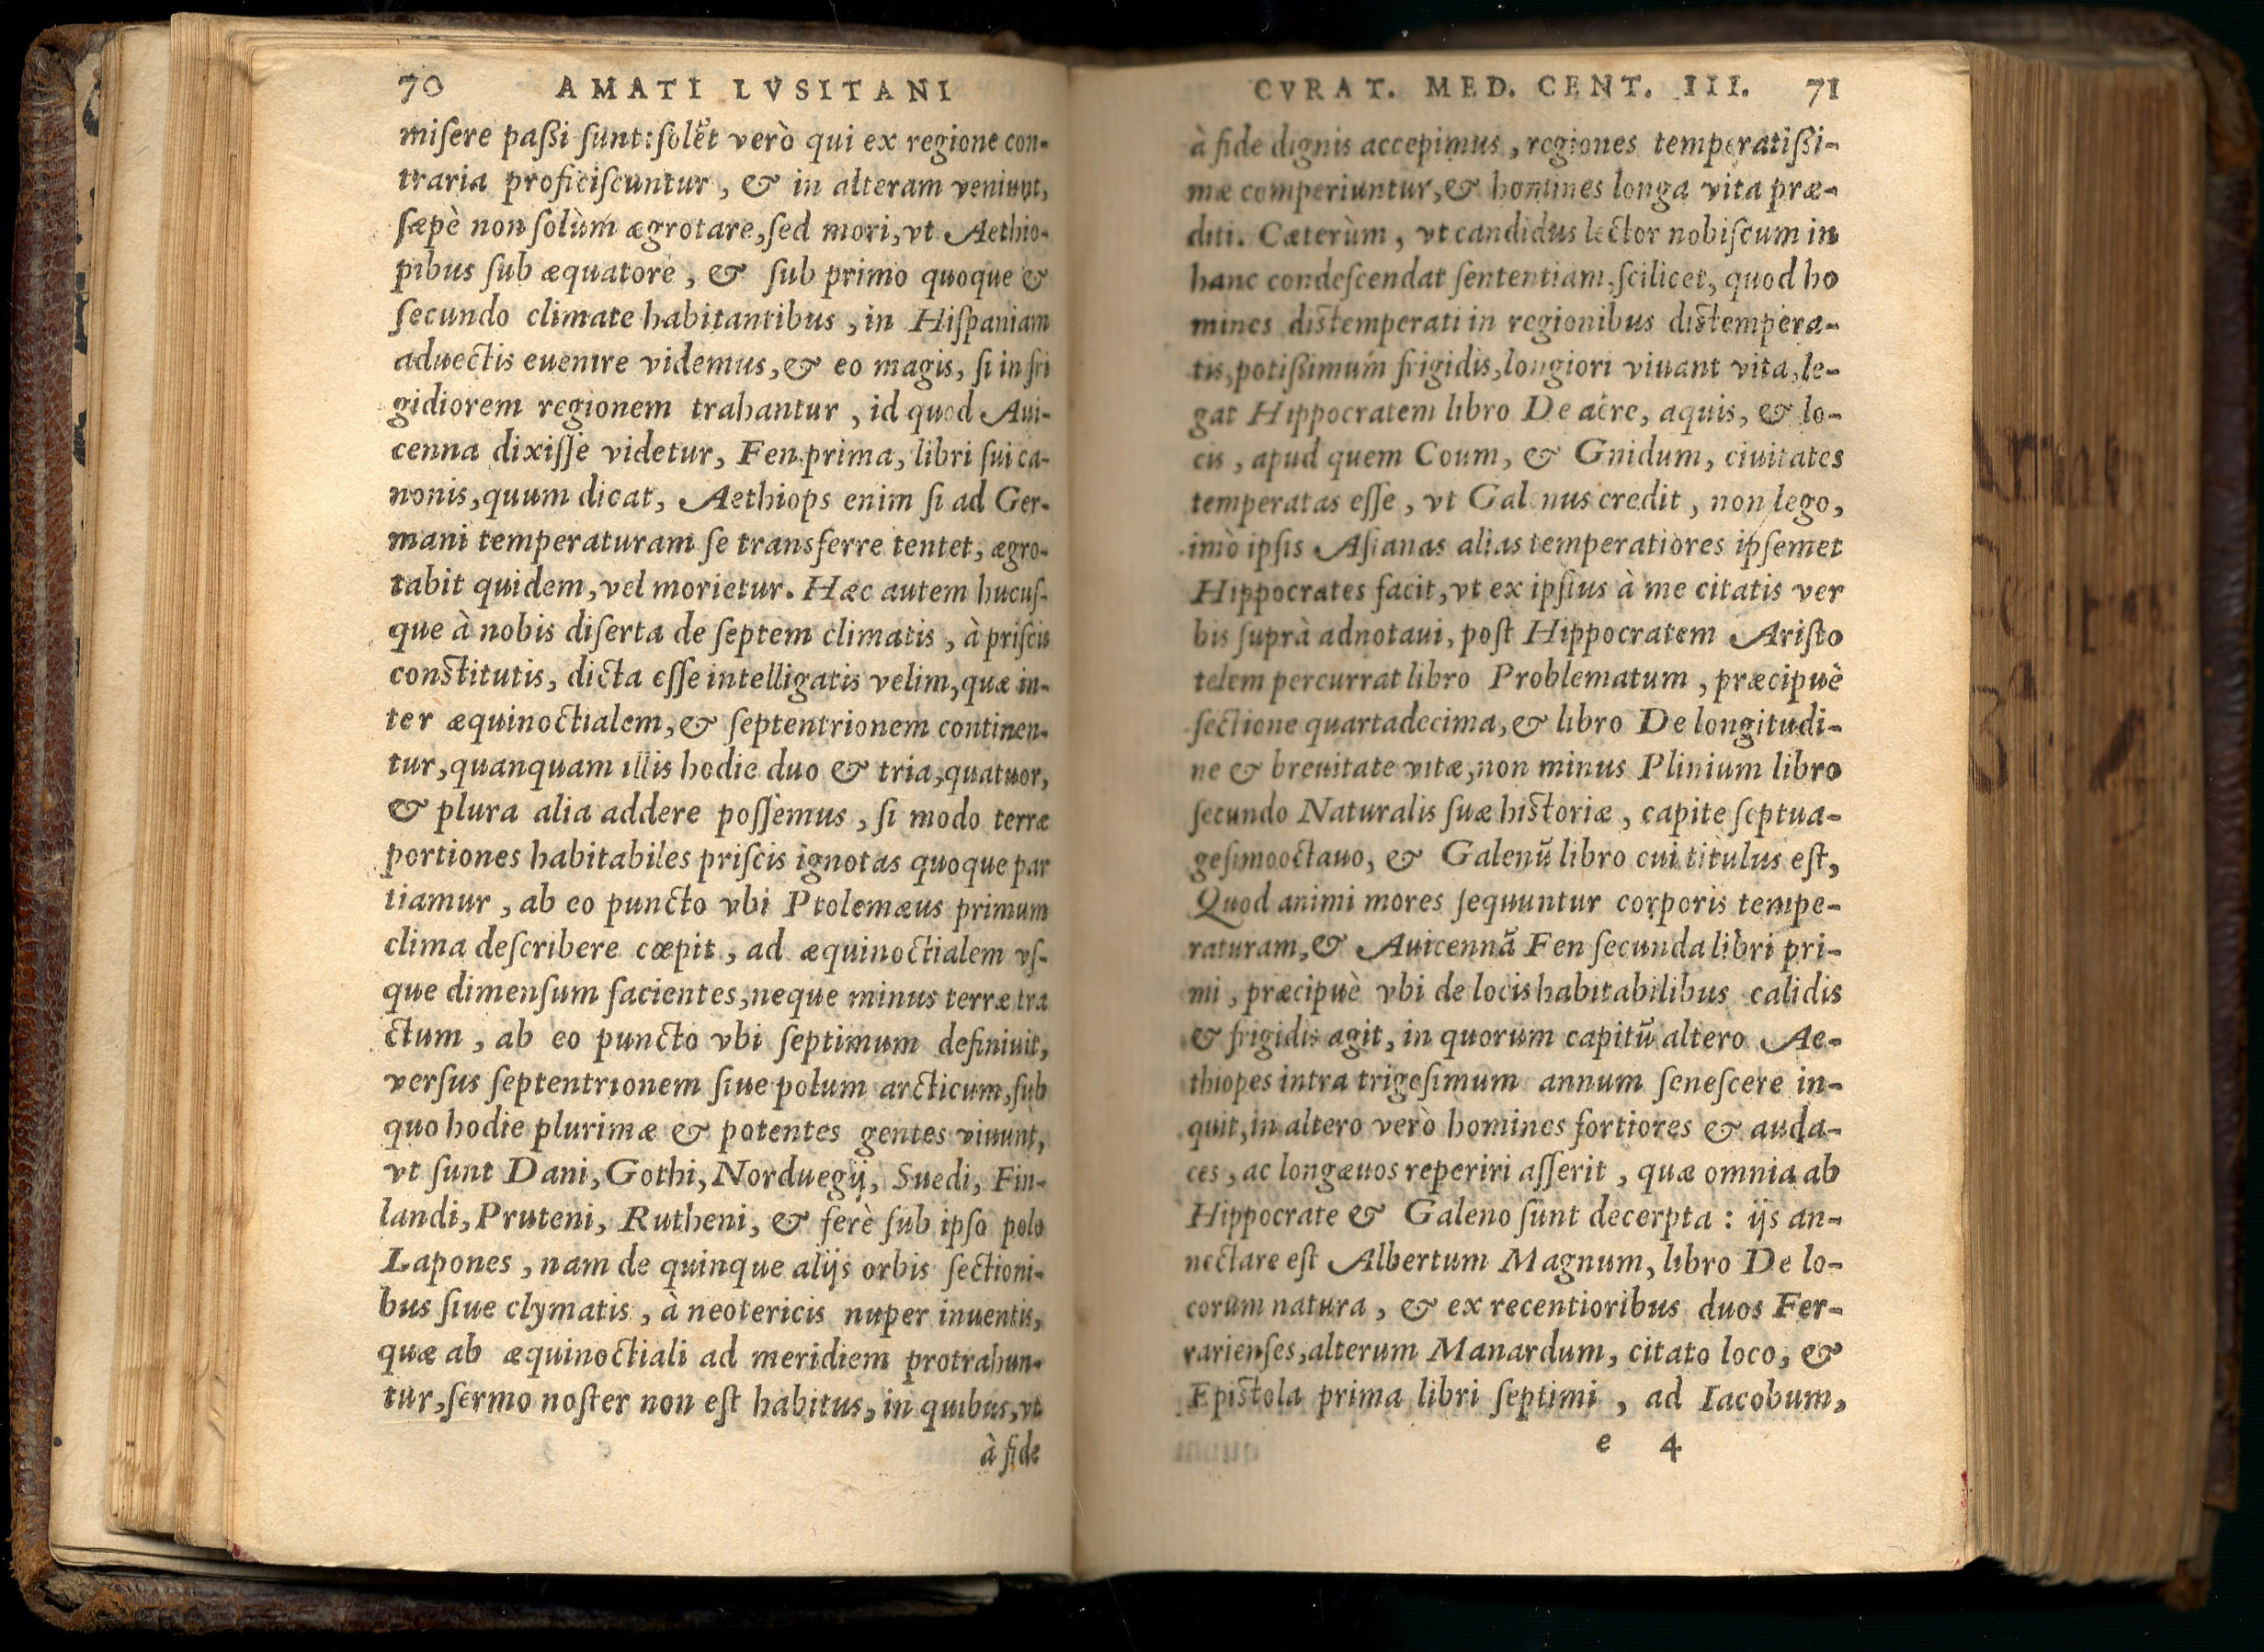 70 AMATI LVSITANI
misere paßi sunt: solẽt verò qui ex regione con-
traria proficiscuntur, & in alteram veniunt,
sæpè non solùm ægrotare, sed mori, vt Aethio-
pibus sub æquatore, & sub primo quoque &
secundo climate habitantibus, in Hispaniam
aduectis euenire videmus, & eo magis, si in fri
gidiorem regionem trahantur, id quod Aui-
cenna dixisse videtur, Fen prima, libri sui ca-
nonis, quum dicat, Aethiops enim si ad Ger-
mani temperaturam se transferre tentet, ægro-
tabit quidem, vel morietur. Hæc autem hucus-
que à nobis diserta de septem climatis, à priscis
constitutis, dicta esse intelligatis velim, quæ in-
ter æquinoctialem, & septentrionem continen-
tur, quanquam illis hodie duo & tria, quatuor,
& plura alia addere possemus, si modo terræ
portiones habitabiles priscis ignotas quoque par
tiamur, ab eo puncto vbi Ptolemæus primum
clima describere cœpit, ad æquinoctialem vs-
que dimensum facientes, neque minus terræ tra
ctum, ab eo puncto vbi septimum definiuit,
versus septentrionem siue polum arcticum, sub
quo hodie plurimæ & potentes gentes viuunt,
vt sunt Dani, Gothi, Norduegij, Suedi, Fin-
landi, Pruteni, Rutheni, & ferè sub ipso polo
Lapones, nam de quinque alijs orbis sectioni-
bus siue clymatis, à neotericis nuper inuentis,
quæ ab æquinoctiali ad meridiem protrahun-
tur, sermo noster non est habitus, in quibus, vt
à fide
CVRAT. MED. CENT. III. 71
à fide dignis accepimus, regiones temperatißi-
mæ comperiuntur, & homines longa vita præ-
diti. Cæterùm, vt candidus lector nobiscum in
hanc condescendat sententiam, scilicet, quod ho
mines distemperati in regionibus distempera-
tis, potißimùm frigidis, longiori viuant vita, le-
gat Hippocratem libro De aëre, aquis, & lo-
cis, apud quem Coum, & Gnidum, ciuitates
temperatas esse, vt Galenus credit, non lego,
imò ipsis Asianas alias temperatiores ipsemet
Hippocrates facit, vt ex ipsius à me citatis ver
bis suprà adnotaui, post Hippocratem Aristo
telem percurrat libro Problematum, præcipuè
sectione quartadecima, & libro De longitudi-
ne & breuitate vitæ, non minus Plinium libro
secundo Naturalis suæ historiæ, capite septua-
gesimooctauo, & Galenũ libro cui titulus est,
Quod animi mores sequuntur corporis tempe-
raturam, & Auicennã Fen secunda libri pri-
mi, præcipuè vbi de locis habitabilibus calidis
& frigidis agit, in quorum capitũ altero Ae-
thiopes intra trigesimum annum senescere in-
quit, in altero verò homines fortiores & auda-
ces, ac longæuos reperiri asserit, quæ omnia ab
Hippocrate & Galeno sunt decerpta: ijs an-
nectare est Albertum Magnum, libro De lo-
corum natura, & ex recentioribus duos Fer-
rarienses, alterum Manardum, citato loco, &
Epistola prima libri septimi, ad Iacobum,
e 4